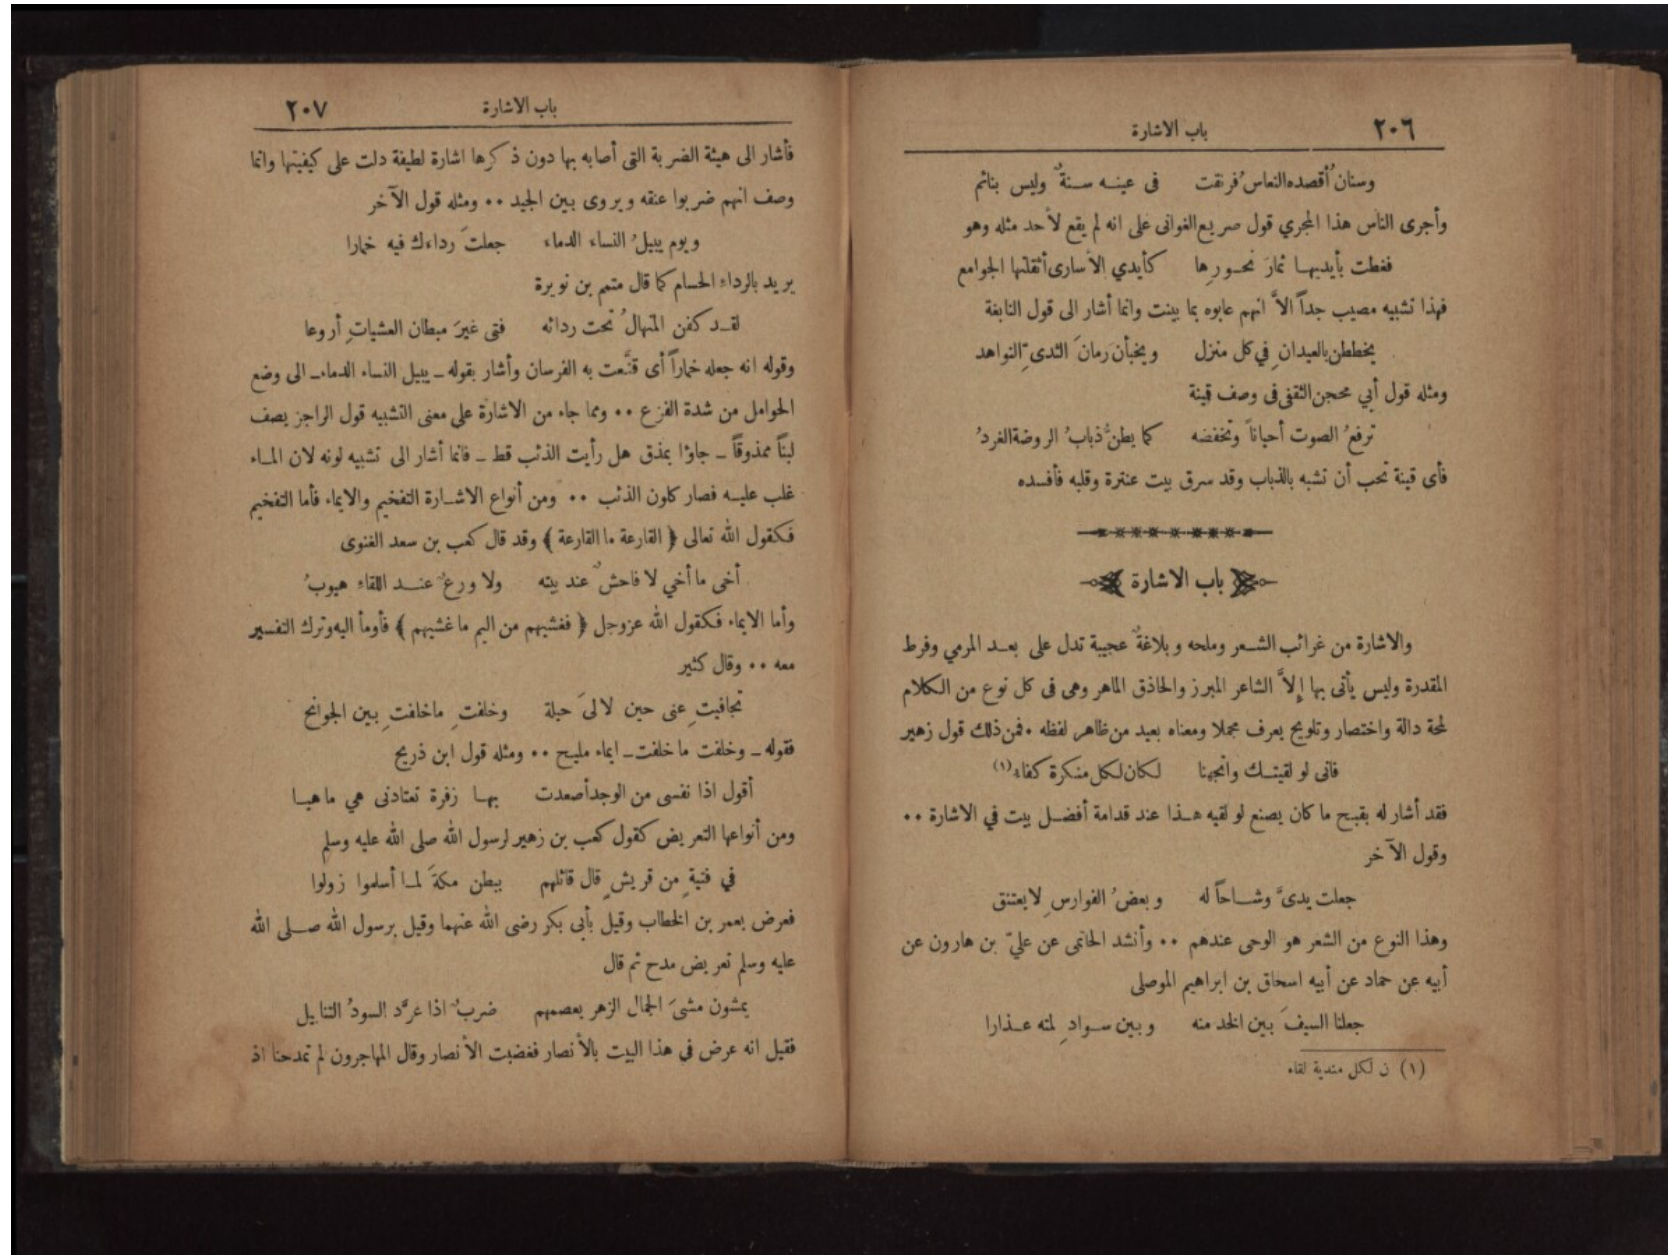 ٢٠٦ باب الاشارة
وسنان أقصده النعاس فرنقت في عينـه سـنةٌ وليس بنائم
وأجرى الناس هذا المجري قول صريع الغوانى على انه لم يقع لأحد مثله وهو
فغطت بأيديهـا ثمارَ نحـورِها كأيدي الأسارى أثقلتها الجوامع
فهذا تشبيه مصيب جداً الاَّ انهم عابوه بما بينت وانما أشار الى قول النابغة
يخططن بالعيدانِ في كل منزل ويخبأن رمانَ الثدىِّ النواهد
ومثله قول أبي محجن الثقفى فى وصف قينة
ترفعُ الصوت أحياناً وتخفضه كما يطنُّ ذبابُ الروضة الغردُ
فأى قينة تحب أن تشبه بالذباب وقد سرق بيت عنترة وقلبه فأفسده
باب الاشارة
والاشارة من غرائب الشـعر وملحه وبلاغةٌ عجيبة تدل على بعـد المرمي وفرط
المقدرة وليس يأتى بها إلاَّ الشاعر المبرز والحاذق الماهر وهى فى كل نوع من الكلام
لمحة دالة واختصار وتلويح يعرف مجملا ومعناه بعيد من ظاهر لفظه . فمن ذلك قول زهير
فانى لو لقيتـك واتجهنا لكان لكل منكرة كفاء (١)
فقد أشار له بقبح ما كان يصنع لو لقيه هـذا عند قدامة أفضـل بيت في الاشارة ..
وقول الآخر
جعلت يدىَّ وشـاحاً له وبعضُ الفوارسِ لا يعتنق
وهذا النوع من الشعر هو الوحى عندهم .. وأنشد الحاتمى عن عليّ بن هارون عن
أبيه عن حماد عن أبيه اسحاق بن ابراهيم الموصلى
جعلنا السيفَ بين الخد منه وبين سـوادِ لمته عـذارا
(١) ن لكل مندية لقاء
باب الاشارة ٢٠٧
فأشار الى هيئة الضربة التى أصابه بها دون ذكرها اشارة لطيفة دلت على كيفيتها وانما
وصف انهم ضربوا عنقه ويروى بين الجيد .. ومثله قول الآخر
ويوم يبيلُ النساء الدماء جعلتَ رداءك فيه خمارا
يريد بالرداء الحسام كما قال متمم بن نويرة
لقـد كفن المنهالُ تحت ردائه فتى غيرَ مبطان العشياتِ أروعا
وقوله انه جعله خماراً أى قنَّعت به الفرسان وأشار بقوله ـ يبيل النساء الدماء ـ الى وضع
الحوامل من شدة الفزع .. ومما جاء من الاشارة على معنى التشبيه قول الراجز يصف
لبناً ممذوقاً ـ جاؤا بمذق هل رأيت الذئب قط ـ فانما أشار الى تشبيه لونه لان المـاء
غلب عليـه فصار كلون الذئب .. ومن أنواع الاشـارة التفخيم والايماء فأما التفخيم
فكقول الله تعالى ﴿ القارعة ما القارعة ﴾ وقد قال كعب بن سعد الغنوى
أخى ما أخي لا فاحشٌ عند بيته ولا ورعٌ عنـد اللقاء هيوبُ
وأما الايماء فكقول الله عز وجل ﴿ فغشيهم من اليم ما غشيهم ﴾ فأومأ اليه وترك التفسير
معه .. وقال كثير
تجافيتِ عنى حين لا لىَ حيلة وخلفتِ ما خلفتِ بين الجوانح
فقوله ـ وخلفت ما خلفت ـ ايماء مليح .. ومثله قول ابن ذريح
أقول اذا نفسى من الوجد أصعدت بهـا زفرة تعتادنى هي ماهيـا
ومن أنواعها التعريض كقول كعب بن زهير لرسول الله صلى الله عليه وسلم
في فتيةٍ من قريشٍ قال قائلهم ببطن مكةَ لمـا أسلموا زولوا
فعرض بعمر بن الخطاب وقيل بأبى بكر رضى الله عنهما وقيل برسول الله صـلى الله
عليه وسلم تعريض مدح ثم قال
يمشون مشىَ الجمال الزهر يعصمهم ضربٌ اذا عرَّد السودُ التنابيل
فقيل انه عرض في هذا البيت بالأنصار فغضبت الأنصار وقال المهاجرون لم تمدحنا اذ